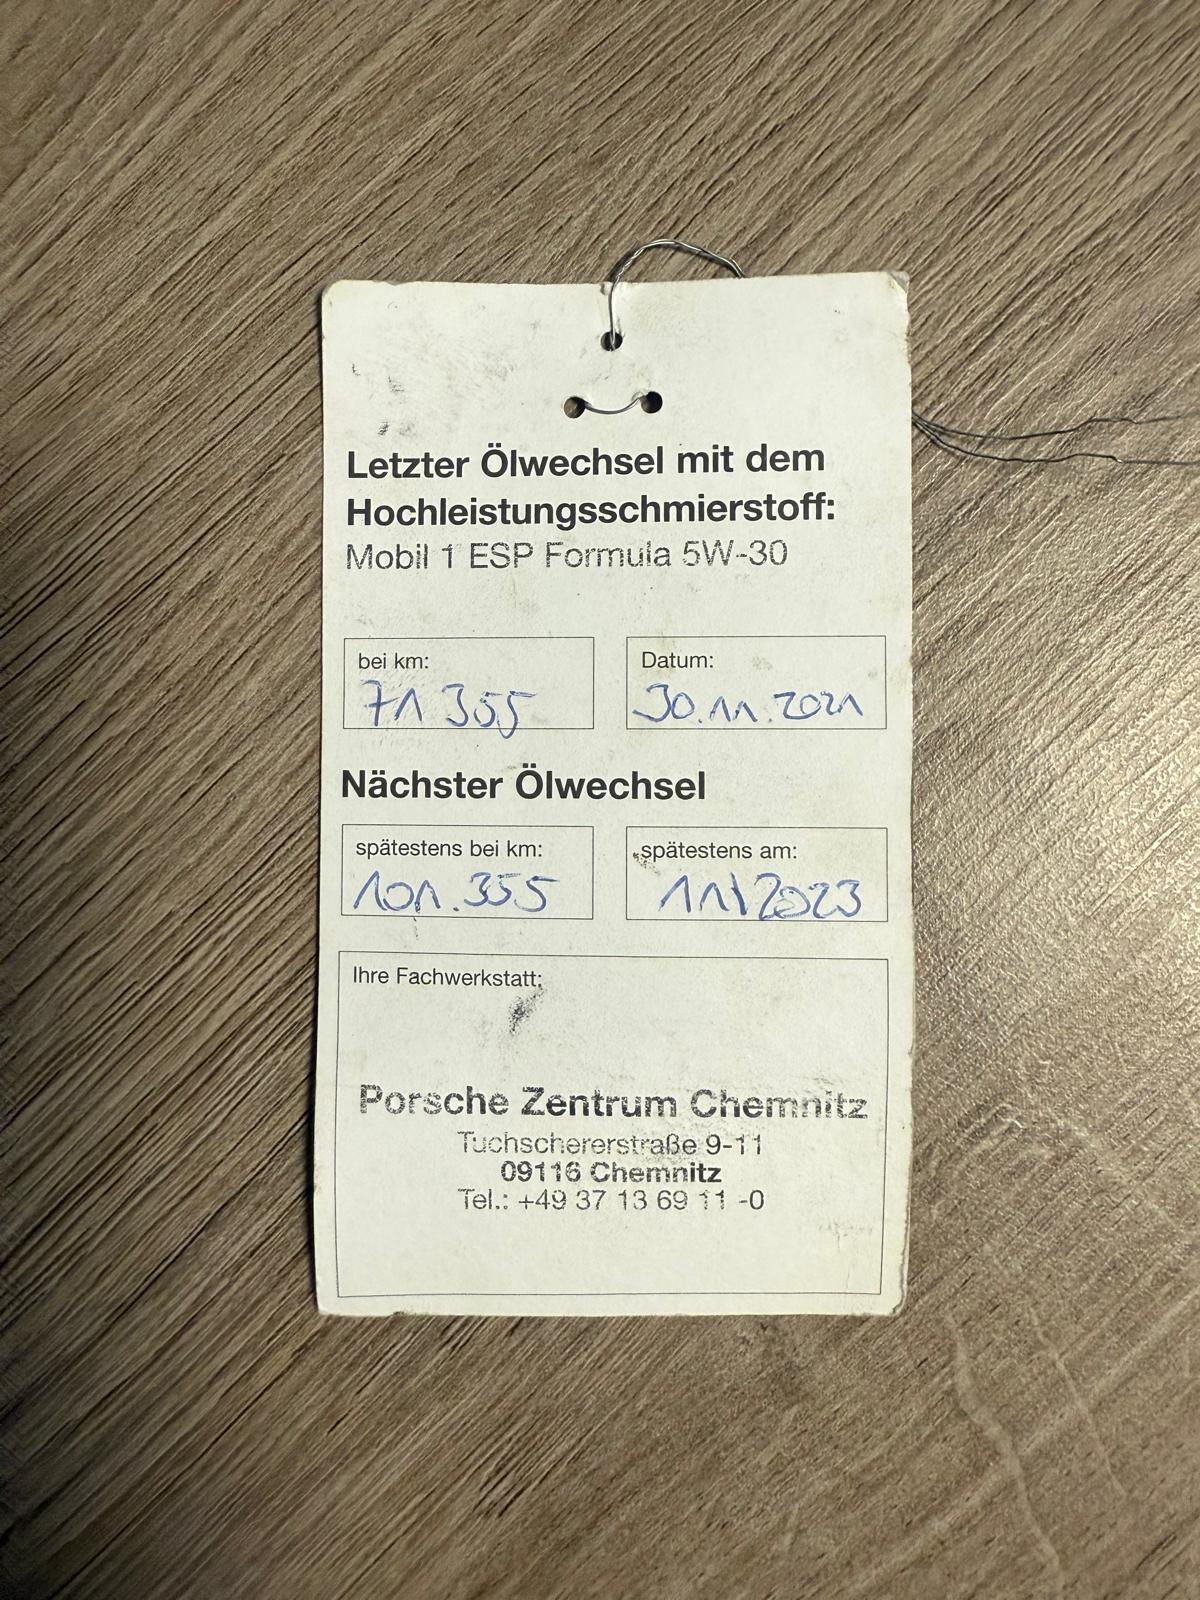 Letzter Ölwechsel mit dem
Hochleistungsschmierstoff:
Mobil 1 ESP Formula 5W-30
bei km:
71 355
Datum:
30.11.2021
Nächster Ölwechsel
spätestens bei km:
101.355
spätestens am:
11\2023
Ihre Fachwerkstatt:
Porsche Zentrum Chemnitz
Tuchschererstraße 9-11
09116 Chemnitz
Tel.: +49 37 13 69 11 -0